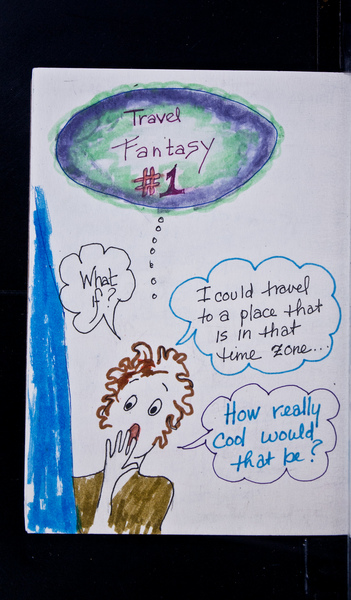 Travel
Fantasy
#1
What
if?
I could travel
to a place that
is in that
time zone...
How really
cool would
that be?